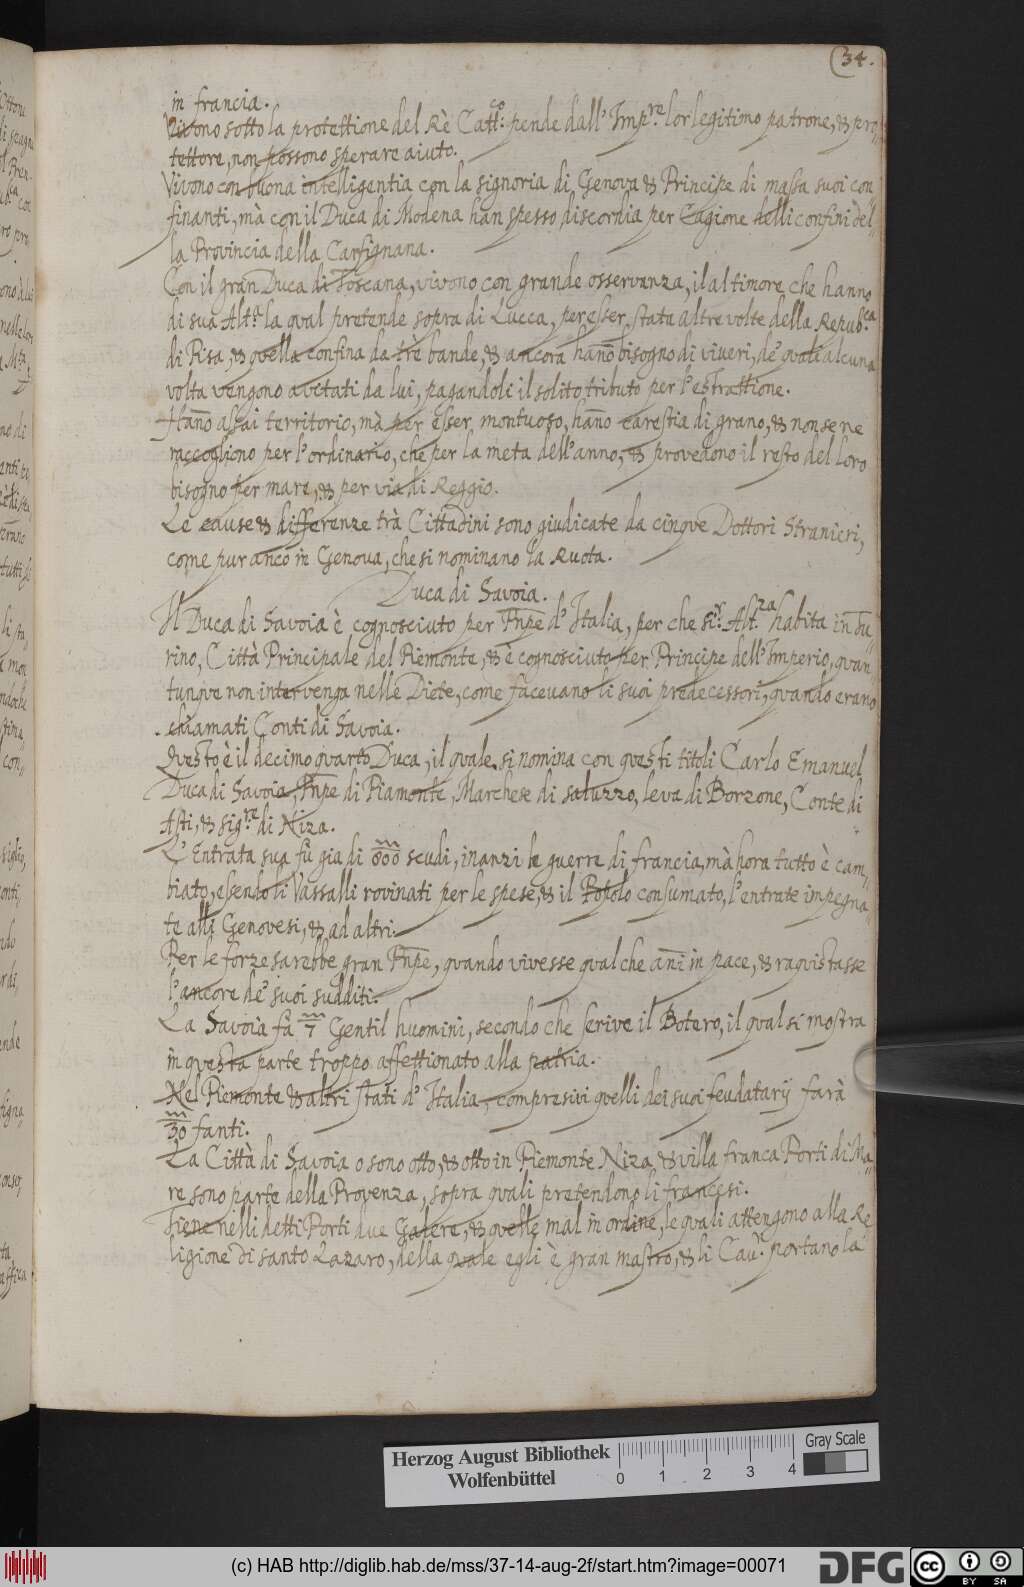 34.
in francia.
Vivono sotto la protettione del Rè Catt:co pende dall' Imp:re lor legitimo patrone, & pro„
tettore, non possono sperare aiuto.
Vivono con buona intelligentia con la signoria di Genova & Principe di massa suoi con
finanti, mà con il Duca di Modena han spesso discordia per Cagione delli confini del„
la Provincia della Carfignana.
Con il gran Duca di Toscana, vivono con grande osservanza, il al timore che hanno
di sua Alt:a la qual pretende sopra di Lucca, per esser stata altre volte della Repub:ca
di Pisa, & quella confina da trè bande, & ancora hano bisogno di viveri, de' quali alcuna
volta vengono avitati da lui, pagandoli il solito tributo per l'estrattione.
Hano assai territorio, mà per esser montuoso, hano carestia di grano, & non se ne
raccogliono per l'ordinario, che per la meta dell'anno, & provedono il resto del loro
bisogno per mare, & per via di Reggio.
Le cause & differenze trà Cittadini sono giudicate da cinque Dottori Stranieri,
come pur anco in Genova, che si nominano la Ruota.
Duca di Savoia.
Il Duca di Savoia è cognosciuto per Pnpe d'Italia, per che Alt:za habita in Tu„
rino, Città Principale del Piemonte, & è cognosciuto per Principe dell'Imperio, quan„
tunque non intervenga nelle Diete, come facevano li suoi predecessori, quando erano
chiamati Conti di Savoia.
Questo è il decimo quarto Duca, il quale si nomina con questi titoli Carlo Emanuel
Duca di Savoia, Pnpe di Piamonte, Marchese di saluzzo, leva di Borzone, Conte di
Asti, & sig:re di Niza.
L'Entrata sua fù gia di m/800 scudi, inanzi le guerre di francia, mà hora tutto è cam„
biato, essendo li Vassalli rovinati per le spese, & il Popolo consumato, l'entrate impegna„
te alli Genovesi, & ad altri.
Per le forze sarebbe gran Pnpe, quando vivesse qual che ani in pace, & raquistasse
l'ancore de' suoi sudditi.
La Savoia fà m/7 Gentil huomini, secondo che scrive il Botero, il qual si mostra
in questa parte troppo affettionato alla patria.
Nel Piemonte & altri stati d'Italia, compresivi quelli dei suoi feudatarij farà
m/30 fanti.
La Città di Savoia o sono otto, & otto in Piemonte Niza & villa franca Porti di Ma„
re sono parte della Provenza, sopra quali pretendono li francesi.
Tiene nelli detti Porti due Galere, & quelle mal in ordine, le quali attengono alla Re
ligione di santo Lazaro, della quale egli è gran mastro, & li Cav:ri portano la
Herzog August Bibliothek
Wolfenbüttel
0 1 2 3 4
Gray Scale
(c) HAB http://diglib.hab.de/mss/37-14-aug-2f/start.htm?image=00071
DFG
cc BY SA